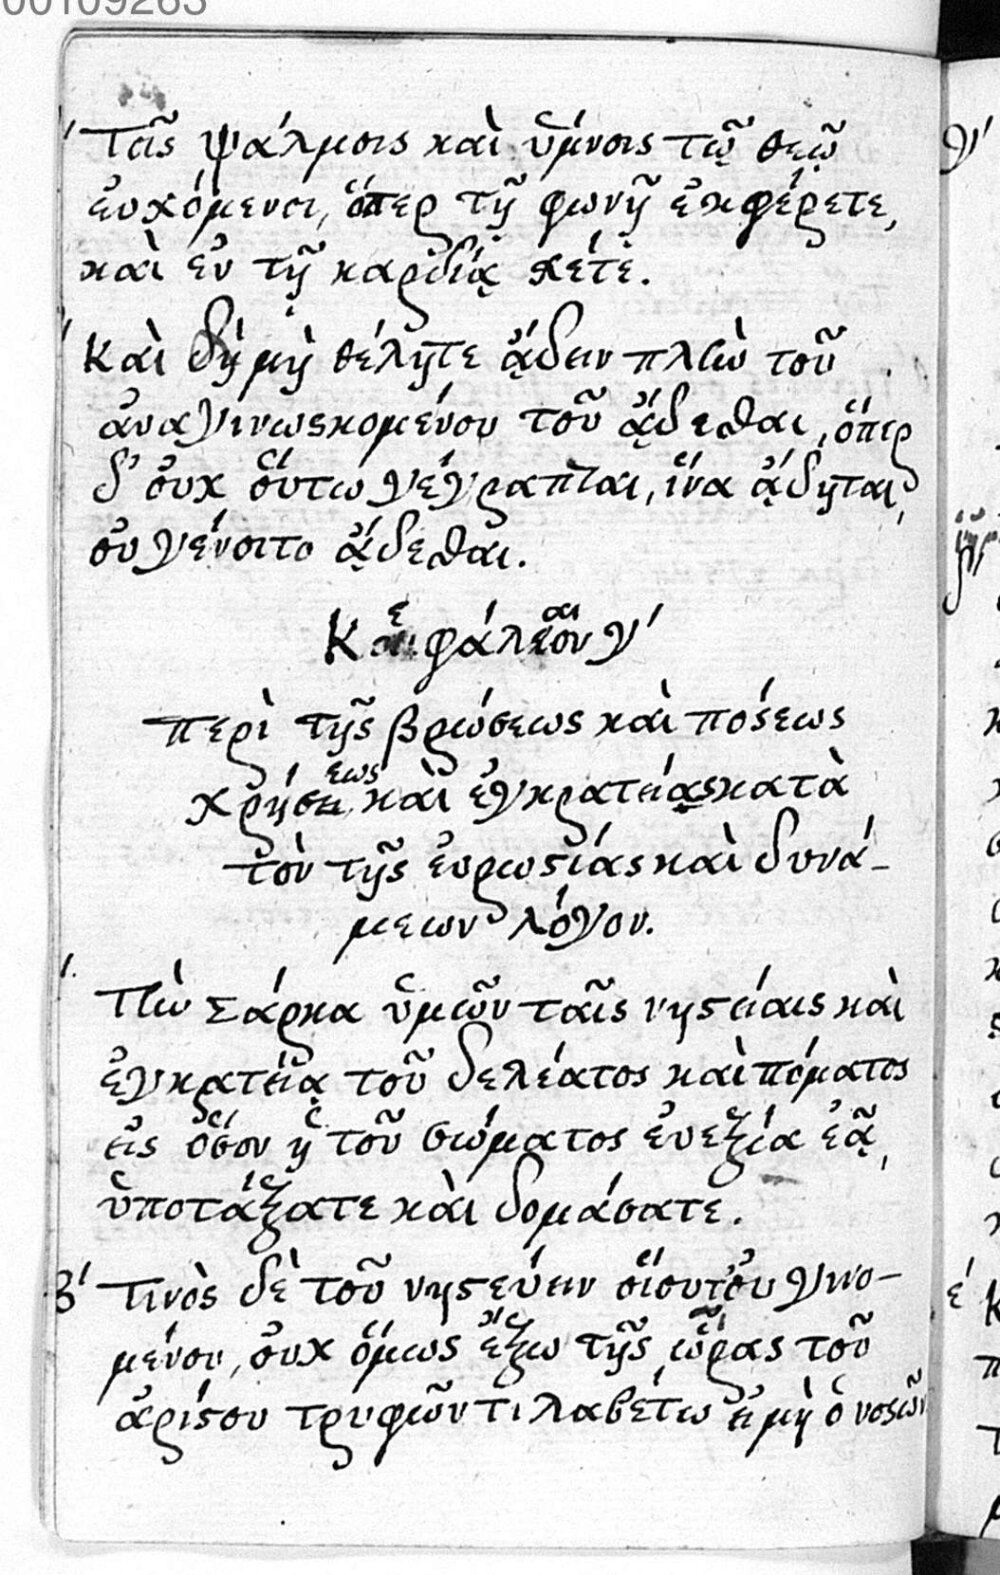 00109263
Τοῖς ψάλμοις καὶ ὕμνοις τῷ θεῷ
εὐχόμενοι, ὅπερ τῇ φωνῇ ἐκφέρετε,
καὶ ἐν τῇ καρδίᾳ χέτε.
Καὶ δὴ μὴ θέλητε ᾄδειν πλὴν τοῦ
ἀναγινωσκομένου τοῦ ᾄδεσθαι, ὅπερ
δ' οὐχ οὕτω γέγραπται, ἵνα ᾄδηται,
οὐ γένοιτο ᾄδεσθαι.
Κεφάλαιον γ'
περὶ τῆς βρώσεως καὶ πόσεως
χρήσεως καὶ ἐγκρατείας κατὰ
τὸν τῆς εὐρωστίας καὶ δυνά-
μεων λόγον.
Τὴν Σάρκα ὑμῶν ταῖς νηστείαις καὶ
ἐγκρατείᾳ τοῦ δελέατος καὶ πόματος
εἰς ὅσον ἡ τοῦ σώματος εὐεξία ἐᾷ,
ὑποτάξατε καὶ δομάσατε.
β' Τινὸς δὲ τοῦ νηστεύειν οἵου τ' οὐ γινο-
μένου, οὐχ ὅμως ἔξω τῆς ὥρας τοῦ
ἀρίστου τρυφῶν τι λαβέτω εἰ μὴ ὁ νοσῶν